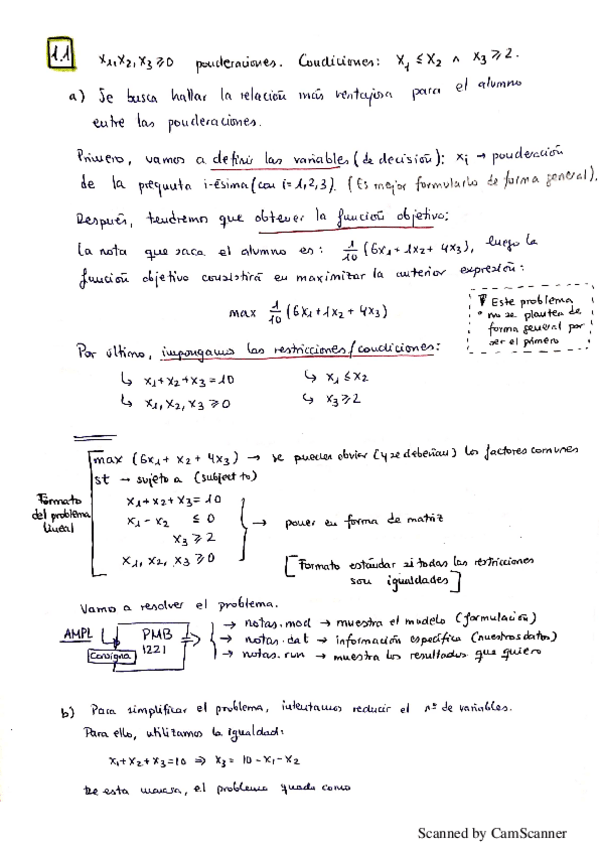 1.1 x₁, x₂, x₃ ≥ 0 ponderaciones. Condiciones: x₁ ≤ x₂ ∧ x₃ ≥ 2.
a) Se busca hallar la relación más ventajosa para el alumno
entre las ponderaciones.
Primero, vamos a definir las variables (de decisión): xᵢ → ponderación
de la pregunta i-ésima (con i=1,2,3). (Es mejor formularlo de forma general).
Después, tendremos que obtener la función objetivo:
La nota que saca el alumno es: 1/10 (6x₁ + 1x₂ + 4x₃), luego la
función objetivo consistirá en maximizar la anterior expresión:
max 1/10 (6x₁ + 1x₂ + 4x₃)
Este problema
no se plantea de
forma general por
ser el primero
Por último, impongamos las restricciones/condiciones:
↳ x₁ + x₂ + x₃ = 10 ↳ x₁ ≤ x₂
↳ x₁, x₂, x₃ ≥ 0 ↳ x₃ ≥ 2
max (6x₁ + x₂ + 4x₃) → se pueden obviar (y se deberían) los factores comunes
st → sujeto a (subject to)
Formato
del problema
lineal
x₁ + x₂ + x₃ = 10
x₁ - x₂ ≤ 0 → poner en forma de matriz
x₃ ≥ 2
x₁, x₂, x₃ ≥ 0
[Formato estándar si todas las restricciones
son igualdades]
Vamo a resolver el problema.
AMPL
Consigna
PMB
1221
→ notas.mod → muestra el modelo (formulación)
→ notas.dat → información específica (nuestros datos)
→ notas.run → muestra los resultados que quiero
b) Para simplificar el problema, intentamos reducir el nº de variables.
Para ello, utilizamos la igualdad:
x₁ + x₂ + x₃ = 10 ⇒ x₃ = 10 - x₁ - x₂
De esta manera, el problema queda como
Scanned by CamScanner